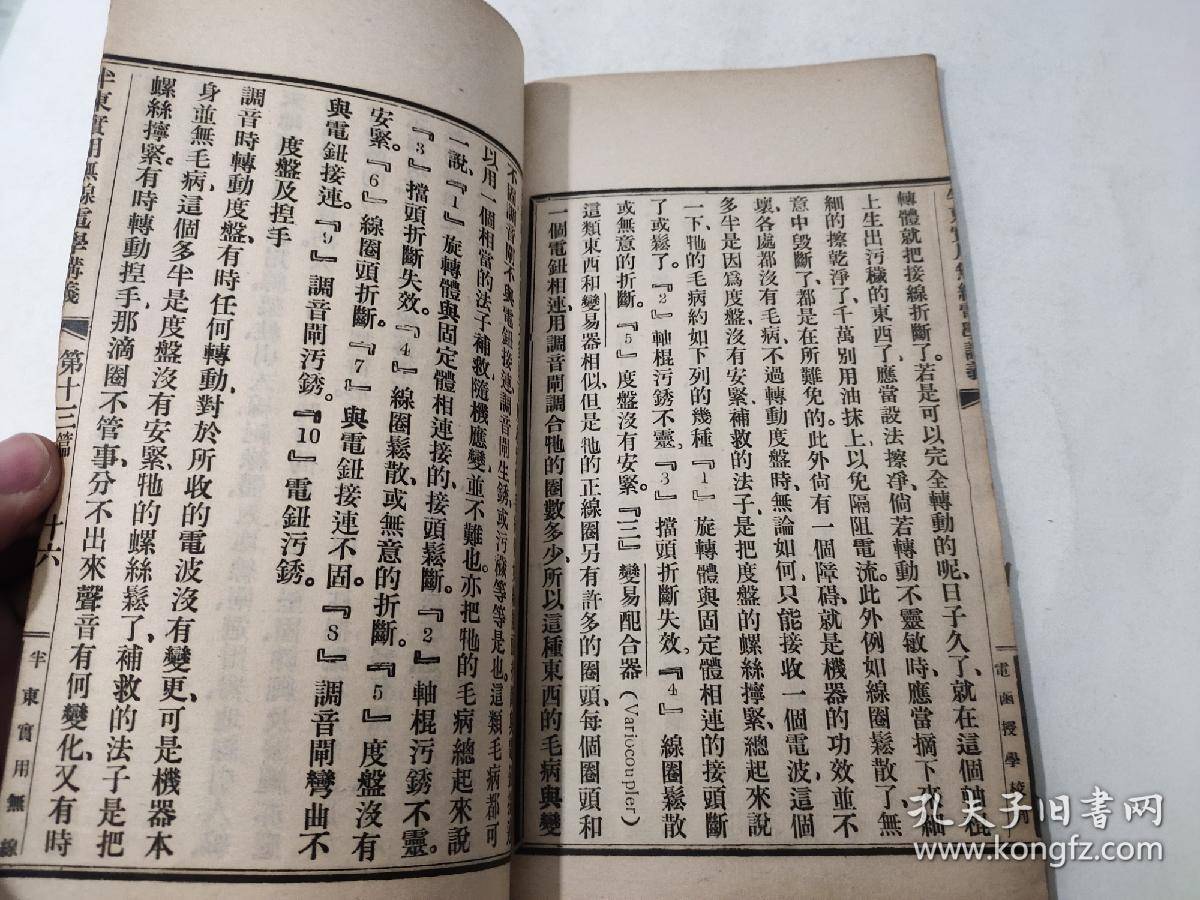 轉體就把接線折斷了。若是可以完全轉動的呢、日子久了、就在這個軸棍
上生出污穢的東西了、應當設法擦凈、倘若轉動不靈敏時、應當摘下來、細
細的擦乾淨了、千萬別用油抹上、以免隔阻電流。此外例如線圈鬆散了、無
意中毀斷了、都是在所難免的。此外尙有一個障碍、就是機器的功效並不
壞、各處都沒有毛病、不過轉動度盤時、無論如何、只能接收一個電波、這個
多半是因爲度盤沒有安緊、補救的法子、是把度盤的螺絲擰緊、總起來說
一下、牠的毛病約如下列的幾種『1』旋轉體與固定體相連的接頭斷
了或鬆了。『2』軸棍污銹不靈。『3』擋頭折斷失效、『4』線圈鬆散
或無意的折斷。『5』度盤沒有安緊。『三』變易配合器(Variocoupler)
這類東西和變易器相似、但是牠的正線圈另有許多的圈頭、每個圈頭和
一個電鈕相連、用調音閘調合牠的圈數多少、所以這種東西的毛病、與變
電函授學校
以用一個相當的法子補救、隨機應變、並不難也。亦把牠的毛病總起來說
一說、『1』旋轉體與固定體相連接的接頭鬆斷、『2』軸棍污銹不靈。
『3』擋頭折斷失效。『4』線圈鬆散或無意的折斷。『5』度盤沒有
安緊。『6』線圈頭折斷。『7』與電鈕接連不固。『8』調音閘彎曲不
與電鈕接連。『9』調音閘汚銹。『10』電鈕汚銹。
度盤及揑手
調音時轉動度盤、有時任何轉動、對於所收的電波沒有變更、可是機器本
身並無毛病、這個多半是度盤沒有安緊、牠的螺絲鬆了、補救的法子、是把
螺絲擰緊。有時轉動揑手、那滴圈不管事、分不出來聲音有何變化、又有時
半東實用無線電學講義
第十三篇
十六
半東實用無線
孔夫子旧书网
www.kongfz.com